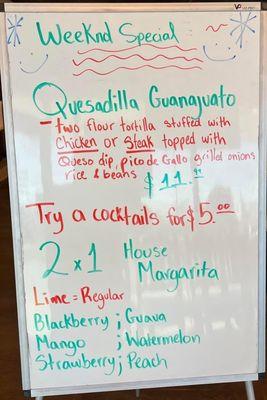 WeeKnd Special
Quesadilla Guanajuato
- two flour tortilla stuffed with
Chicken or Steak topped with
Queso dip, pico de Gallo grilled onions
rice & beans $11.99
Try a cocktails for $5.00
2x1 House
Margarita
Lime = Regular
Blackberry ; Guava
Mango ; Watermelon
Strawberry ; Peach